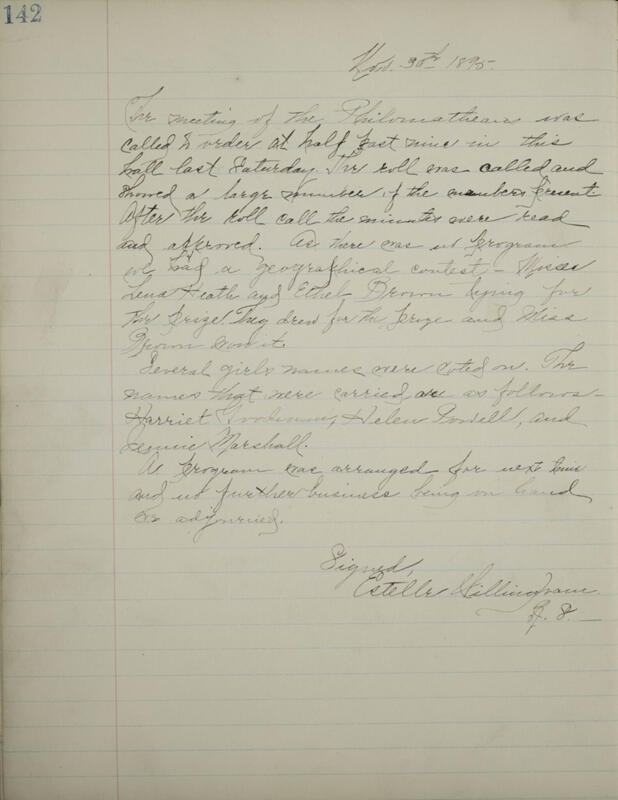 142
Nov. 30th 1895.
The meeting of the Philomatheans was
called to order at half past nine in this
hall last Saturday. The roll was called and
showed a large number of the members present.
After the roll call the minutes were read
and approved. As there was no program
we had a geographical contest - Misses
Lena Heath and Ethel Brown tying for
the prize. They drew for the prize and Miss
Brown won it.
Several girls names were voted on. The
names that were carried are as follows -
Harriet Goodman, Helen Powell, and
Jennie Marshall.
A program was arranged for next time
and no further business being on hand
we adjourned.
Signed,
Estelle Dillingham.
S.